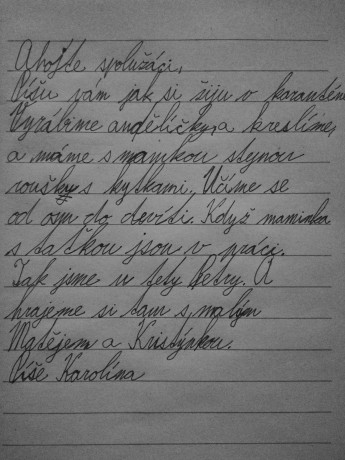 Ahojte spolužáci,
Píšu vám jak si žiju v karanténě
Vyrábíme andělíčky, a kreslíme,
a máme s maminkou stejnou
roušky s kytkami. Učíme se
od osm do devíti. Když maminka
s taťkou jsou v práci.
Tak jsme u tety Petry. A
hrajeme si tam s malým
Matějem a Kristýnkou.
Píše Karolína